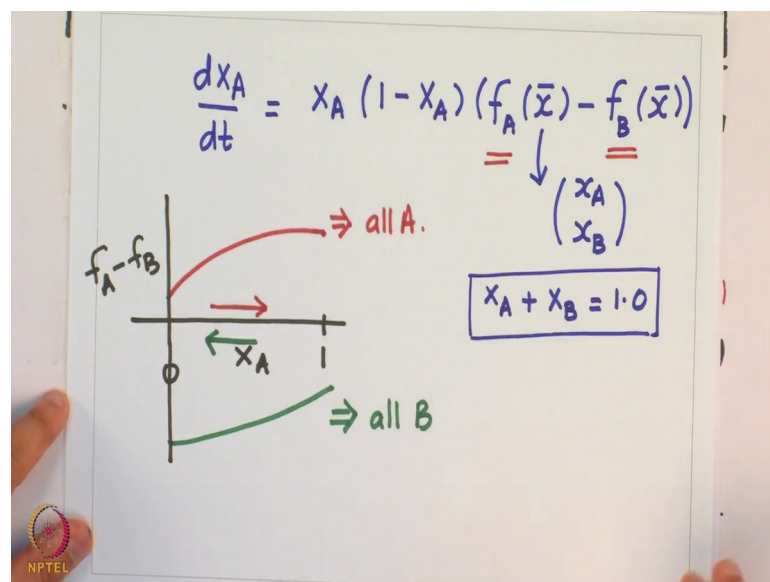 dx_A/dt = x_A (1 - x_A) (f_A(x̄) - f_B(x̄))
(x_A
x_B)
x_A + x_B = 1.0
f_A - f_B
⇒ all A.
x_A
0
1
⇒ all B
NPTEL